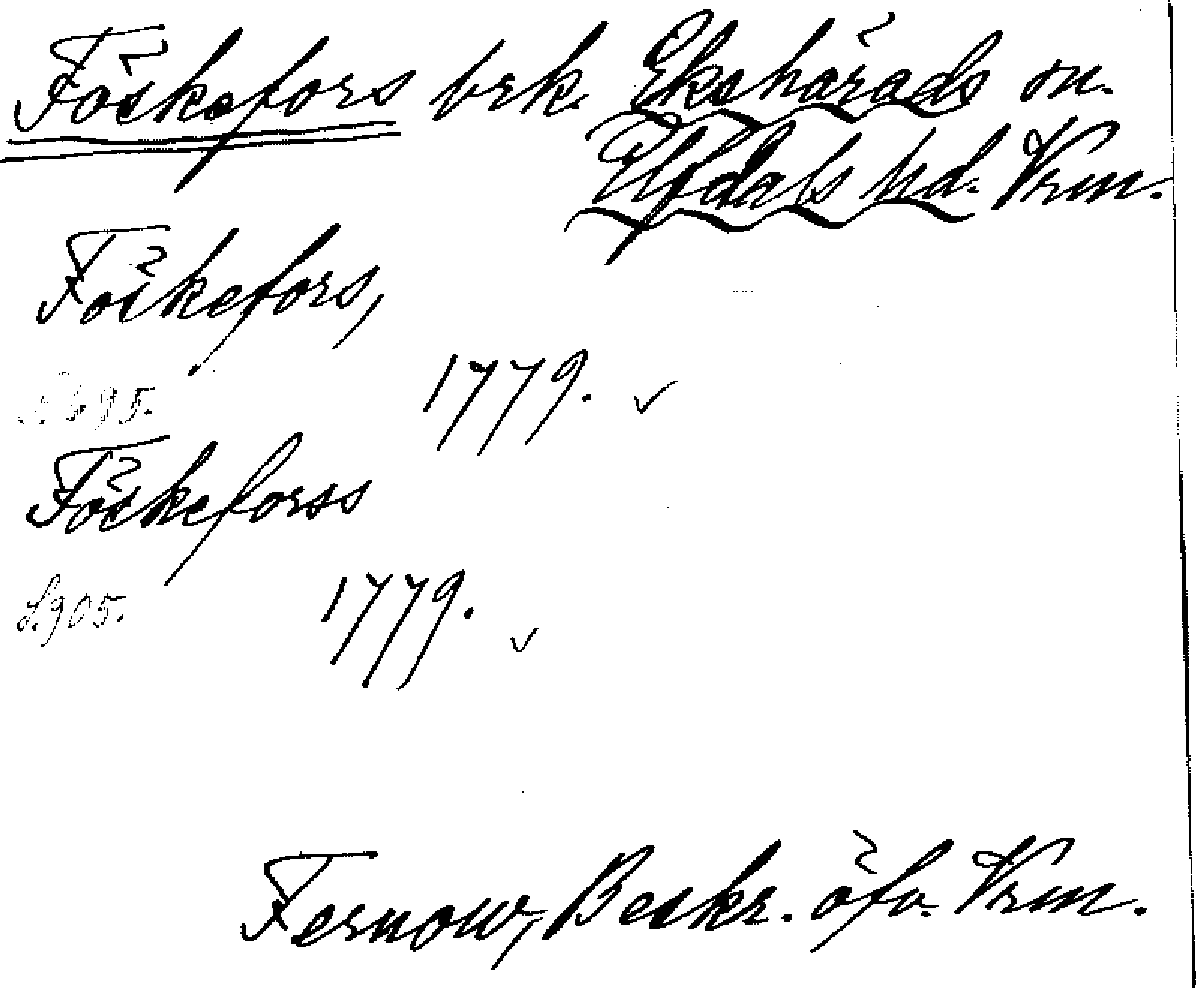 Föskefors brk. Ekshärads sn.
Elfdals hd. Vrm.
Föskefors,
S. 695.
1779. ✓
Föskeforss
S. 905.
1779. ✓
Fernow, Beskr. öfv. Vrm.